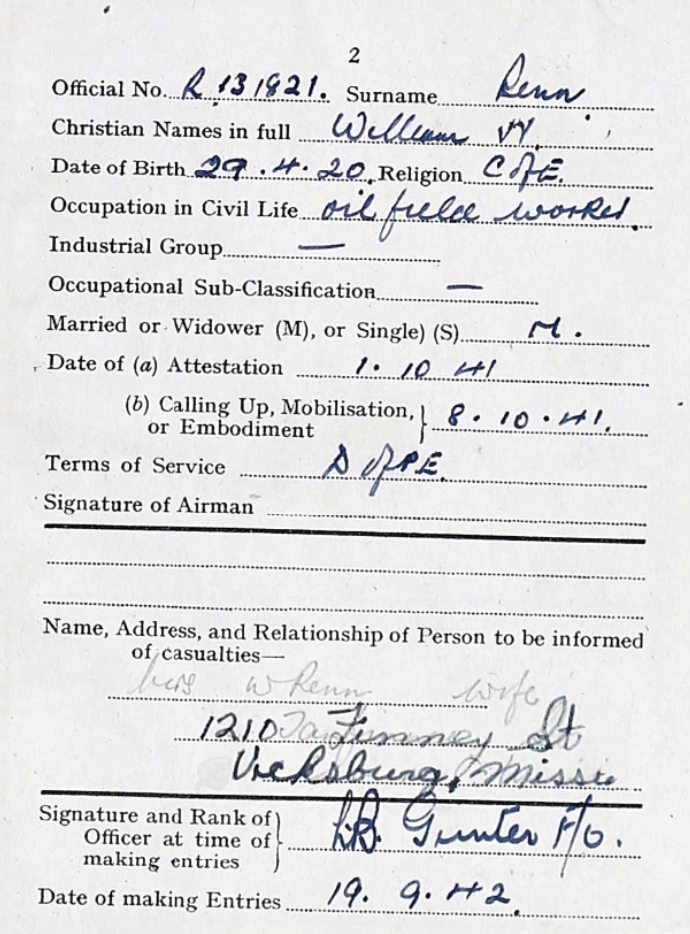 2
Official No. R.131821. Surname Renn
Christian Names in full William W.
Date of Birth 29.4.20. Religion C of E.
Occupation in Civil Life oil field worker.
Industrial Group —
Occupational Sub-Classification —
Married or Widower (M), or Single) (S) M.
Date of (a) Attestation 1.10 41
(b) Calling Up, Mobilisation, or Embodiment } 8.10.41.
Terms of Service D of PE.
Signature of Airman
Name, Address, and Relationship of Person to be informed
of casualties—
Mrs W Renn wife
1210 Finney St
Vicksburg, Missi
Signature and Rank of Officer at time of making entries } Gunter F/O.
Date of making Entries 19. 9.42.